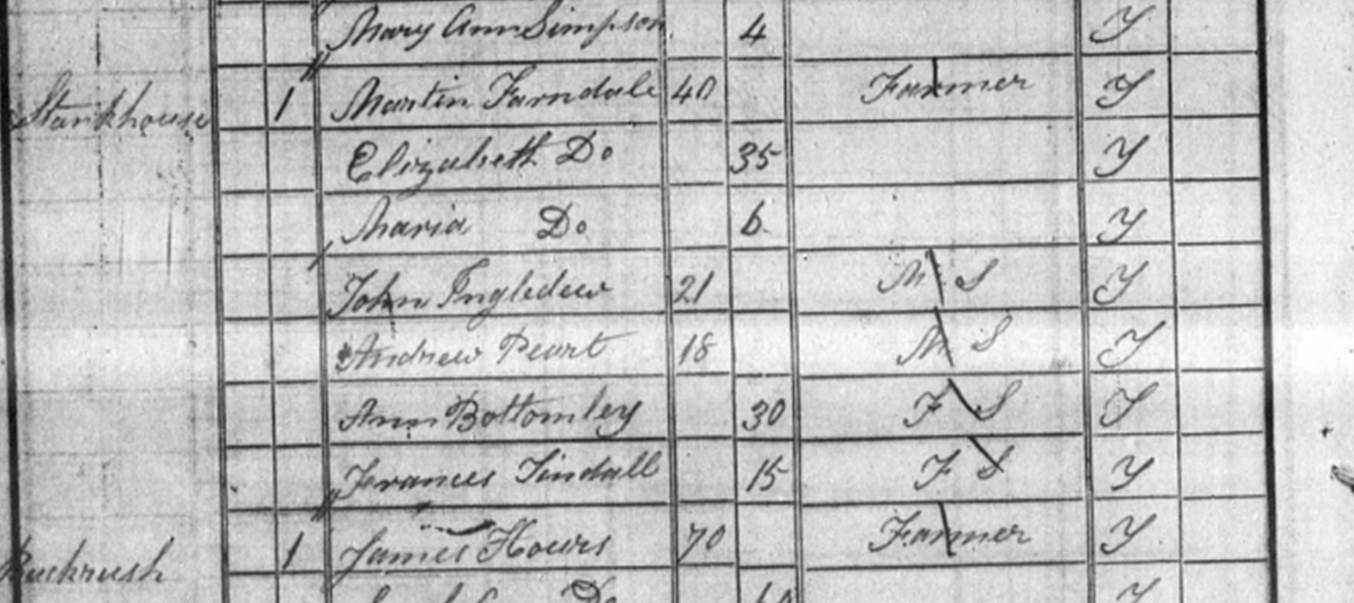 Mary Ann Simpson 4 Y
Stankhouse 1 Martin Farndale 40 Farmer Y
Elizabeth Do 35 Y
Maria Do 6 Y
John Ingledew 21 M S Y
Andrew Peart 18 M S Y
Ann Bottomley 30 F S Y
Frances Tindall 15 F S Y
1 James Hours 70 Farmer Y
Do Y